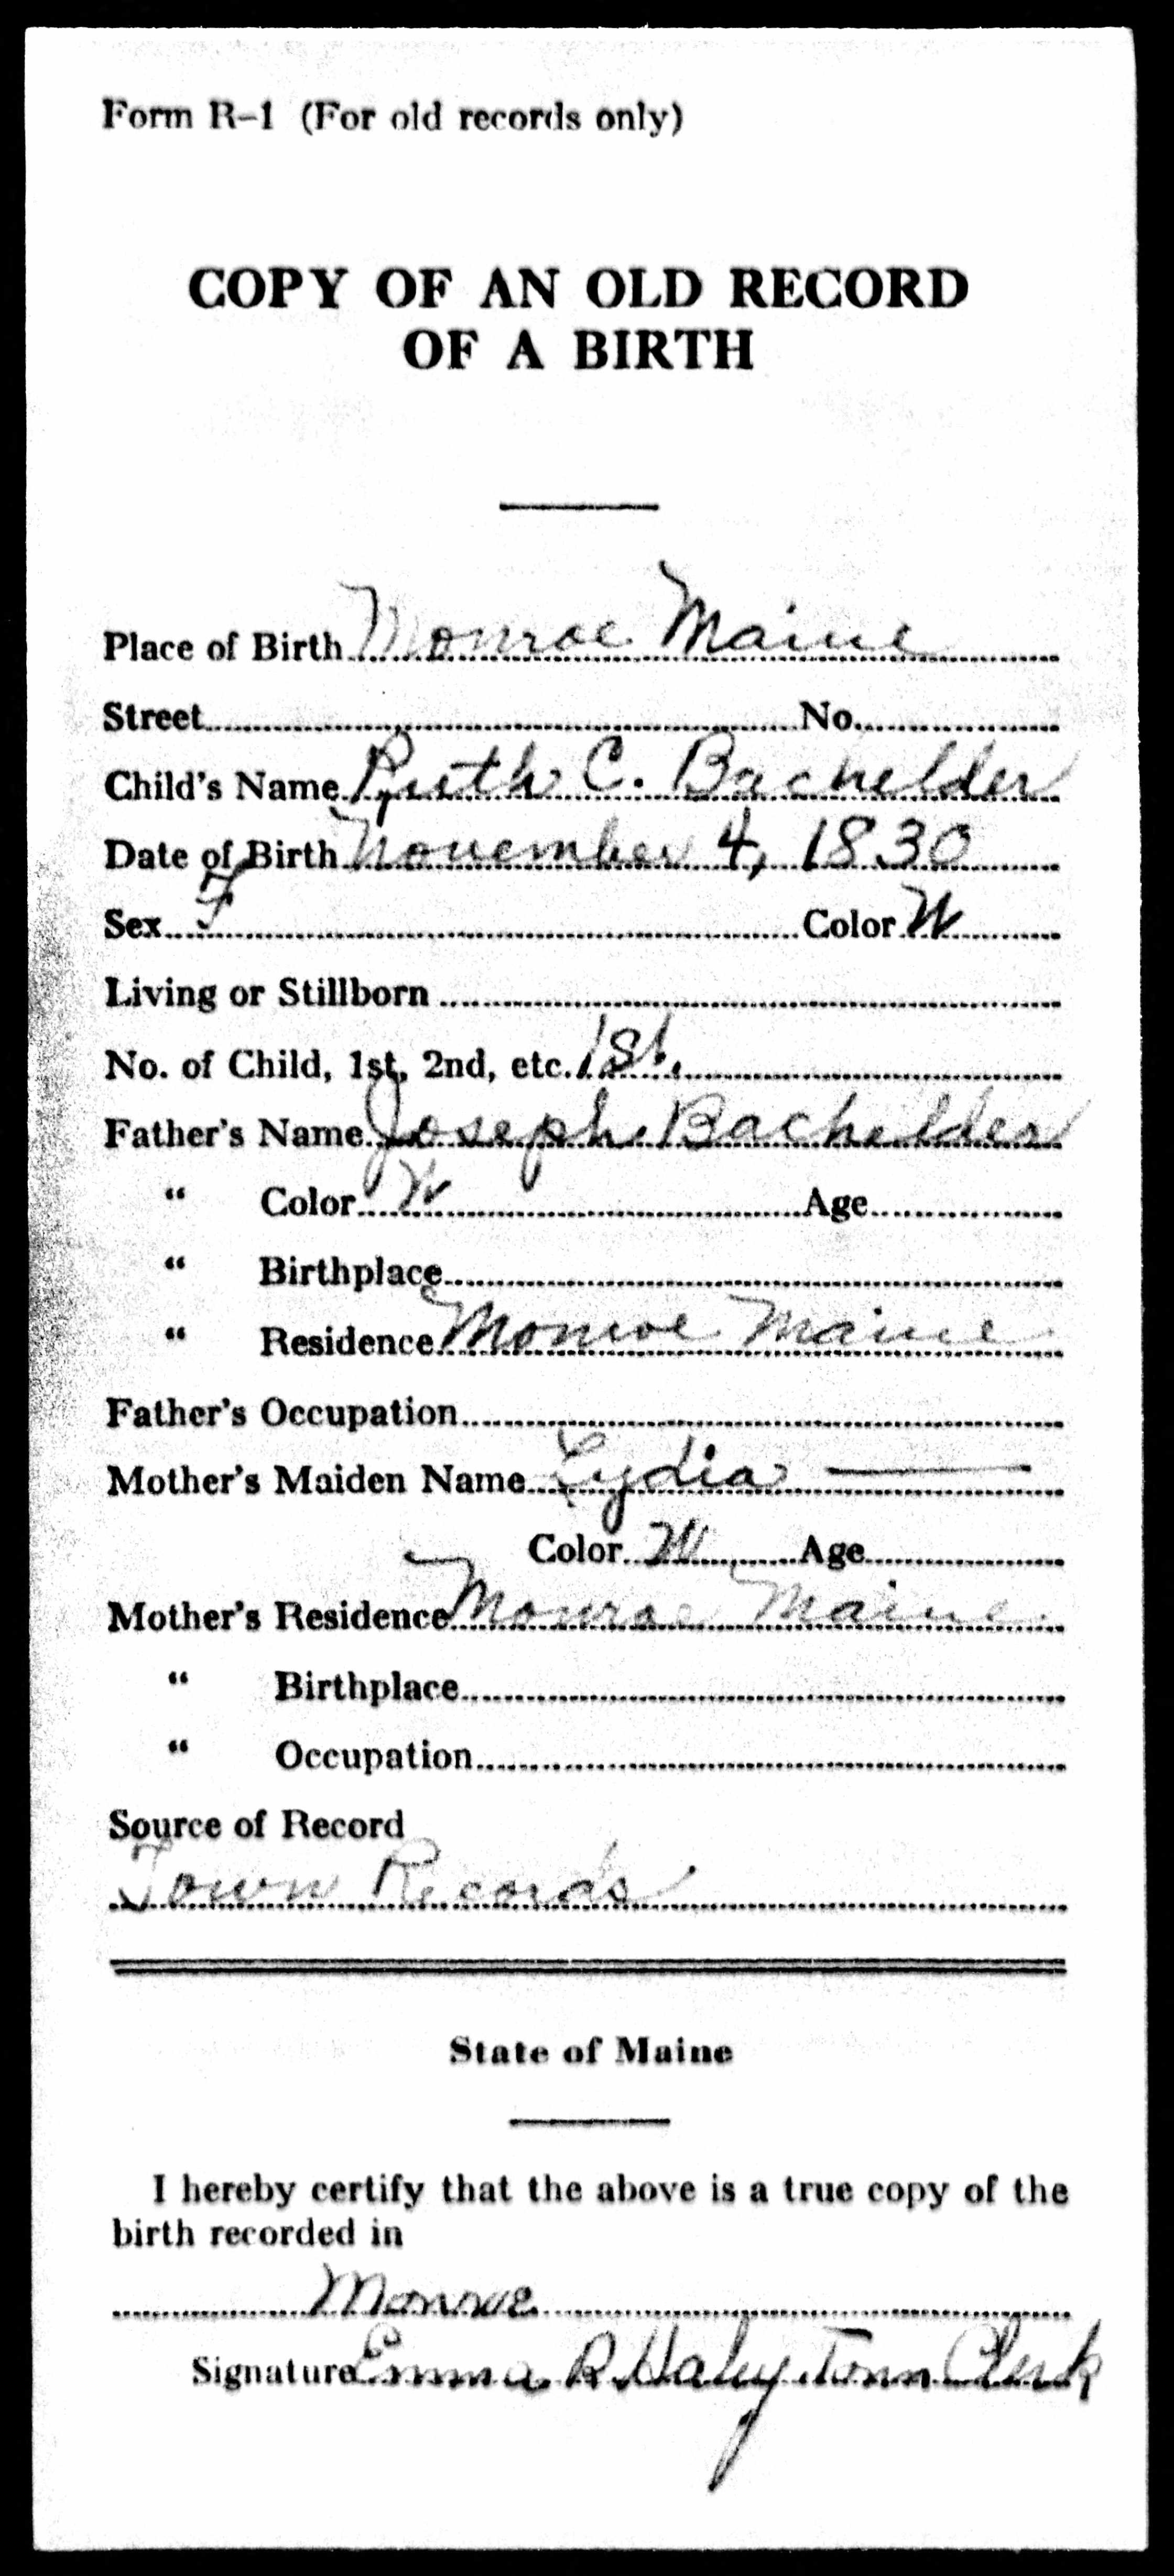 Form R-1 (For old records only)
COPY OF AN OLD RECORD
OF A BIRTH
Place of Birth Monroe Maine
Street No.
Child's Name Ruth C. Bachelder
Date of Birth November 4, 1830
Sex F Color W
Living or Stillborn
No. of Child, 1st, 2nd, etc. 1st.
Father's Name Joseph Bachelder
" Color W Age
" Birthplace
" Residence Monroe Maine
Father's Occupation
Mother's Maiden Name Lydia —
Color W Age
Mother's Residence Monroe Maine
" Birthplace
" Occupation
Source of Record
Town Records
State of Maine
I hereby certify that the above is a true copy of the
birth recorded in
Monroe
Signature Emma R. Haley Town Clerk